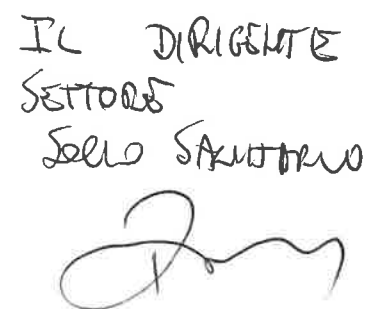 IL DIRIGENTE
SETTORE
SOCIO SANITARIO